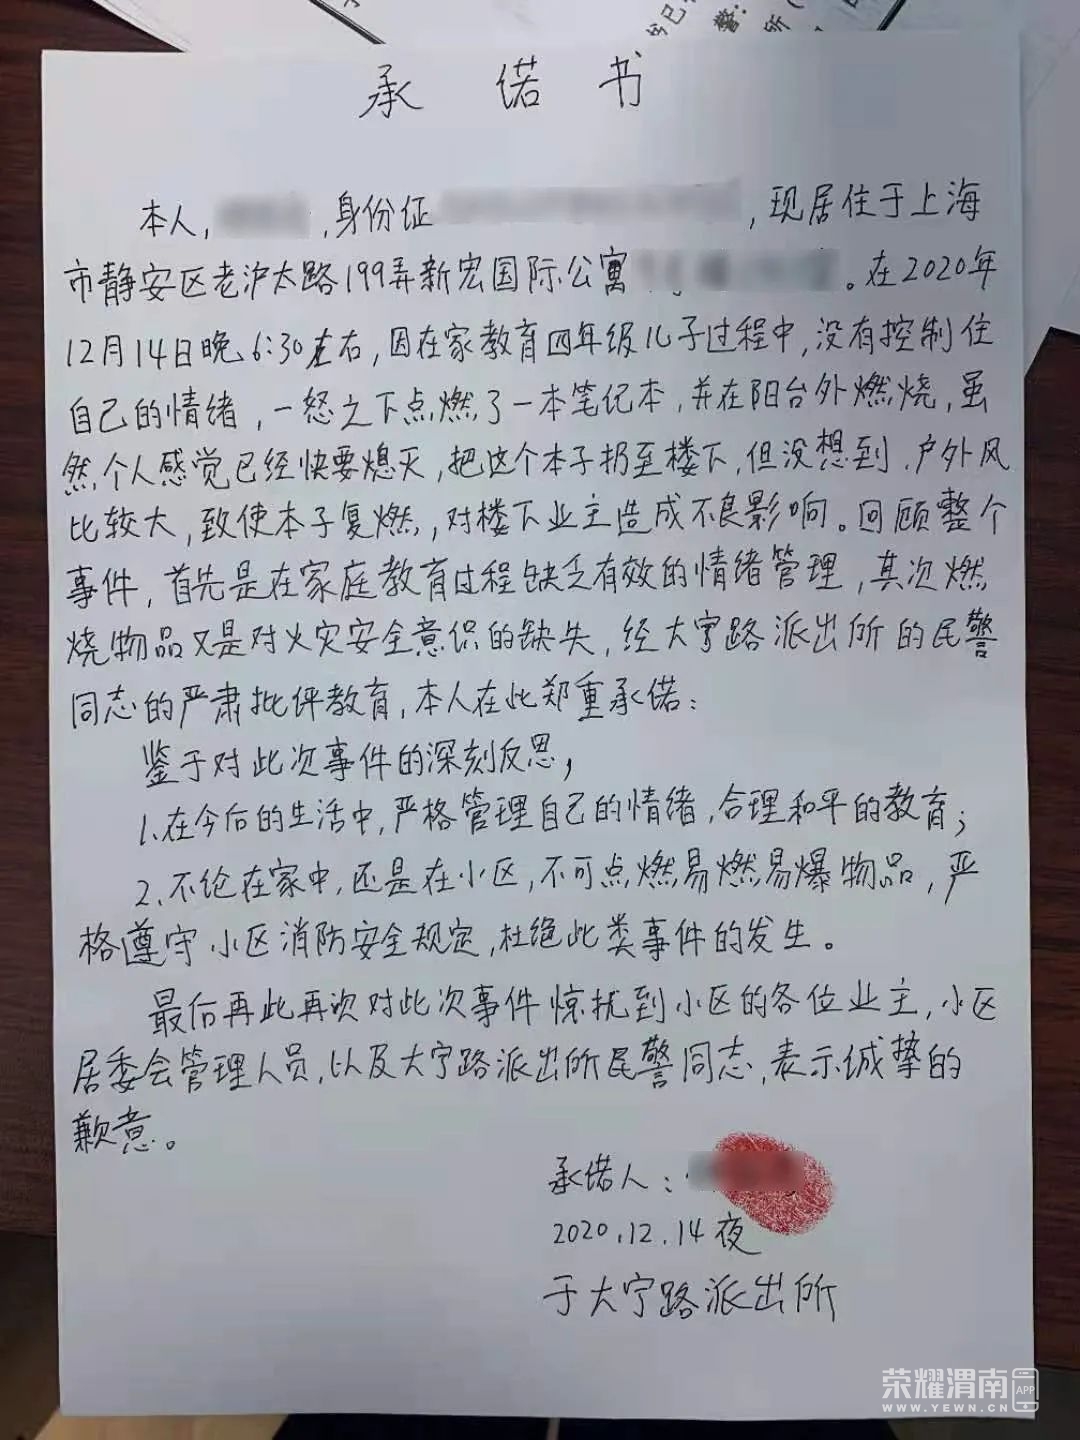 承诺书
本人, ,身份证 ,现居住于上海
市静安区老沪太路199弄新宏国际公寓 。在2020年
12月14日晚6:30左右,因在家教育四年级儿子过程中,没有控制住
自己的情绪,一怒之下点燃了一本笔记本,并在阳台外燃烧,虽
然个人感觉已经快要熄灭,把这个本子扔至楼下,但没想到,户外风
比较大,致使本子复燃,对楼下业主造成不良影响。回顾整个
事件,首先是在家庭教育过程缺乏有效的情绪管理,其次燃
烧物品又是对火灾安全意识的缺失,经大宁路派出所的民警
同志的严肃批评教育,本人在此郑重承诺:
鉴于对此次事件的深刻反思,
1.在今后的生活中,严格管理自己的情绪,合理和平的教育;
2.不论在家中,还是在小区,不可点燃易燃易爆物品,严
格遵守小区消防安全规定,杜绝此类事件的发生。
最后再此再次对此次事件惊扰到小区的各位业主,小区
居委会管理人员,以及大宁路派出所民警同志,表示诚挚的
歉意。
承诺人:
2020.12.14夜
于大宁路派出所
荣耀渭南APP
WWW.YEWN.CN